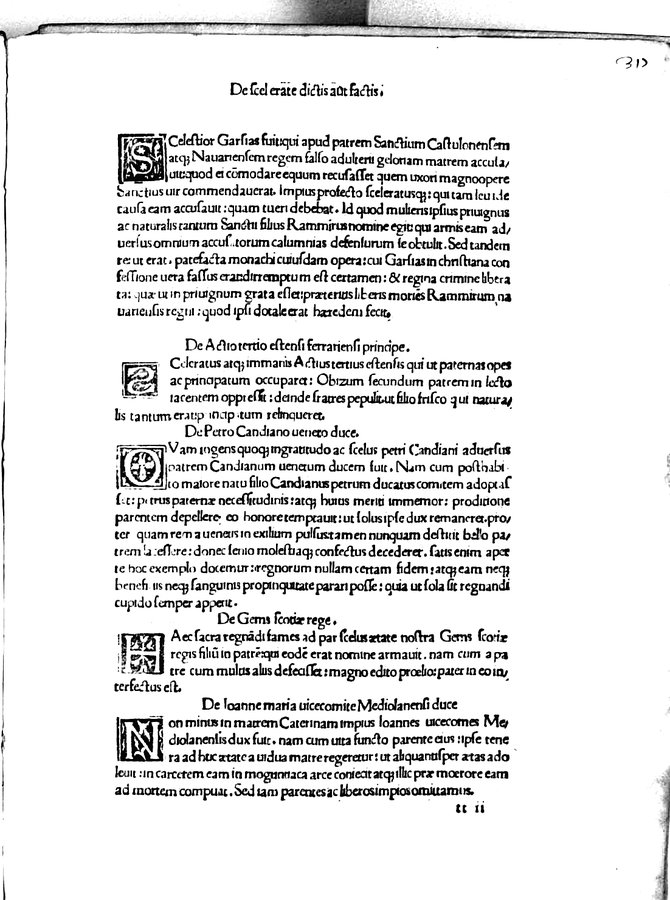 De scelerāte dictis aūt factis.
SCelestior Garsias fuit:qui apud patrem Sanctium Castulonensem
atq; Nauariensem regem falso adulterii geloriam matrem accusa/
uit:quod ei cōmodare equum recusasset quem uxori magnoopere
Sanctius uir commendauerat. Impius profecto sceleratusq;:qui tam leui de
causa eam accusauit:quam tueri debebat. Id quod mulieris ipsius priuignus
ac naturalis tantum Sanctii filius Rammirus nomine egit: qui armis eam ad/
uersus omnium accusatorum calumnias defensurum se obtulit. Sed tandem
res ut erat. patefacta monachi cuiusdam opera:cui Garsias in christiana con
fessione uera fassus erat:diremptum est certamen:& regina crimine libera
ta: quæ ut in priuignum grata esset:præteritis liberis moriēs Rammirum na
uariensis regni:quod ipsi dotale erat hæredem fecit.
De Actio tertio estensi ferrariensi principe.
SCeleratus atq; immanis Actius tertius estensis qui ut paternas opes
ac principatum occuparet: Obizum secundum patrem in lecto
iacentem oppressit:deinde fratres pepulit:ut filio frisco qui natura/
lis tantum erat:principatum relinqueret.
De Petro Candiano ueneto duce.
QVam ingens quoq; ingratitudo ac scelus petri Candiani aduersus
patrem Candianum uenetum ducem fuit. Nam cum posthabi
to maiore natu filio Candianus petrum ducatus comitem adoptas
set: petrus paternæ necessitudinis:atq; huius meriti immemor: proditione
parentem depellere eo honore temptauit:ut solus ipse dux remaneret.pro/
ter quam rem a uenetis in exilium pulsus:tamen nunquam destitit bello pa/
trem lacessere:donec senio molestiaq; confectus decederet. satis enim aper
te hoc exemplo docemur:regnorum nullam certam fidem:atq; eam neq;
beneficiis neq; sanguinis propinquitate parari posse:quia ut sola sit regnandi
cupido semper appetit.
De Gems scotiæ rege.
HAec sacra regnādi fames ad par scelus ætate nostra Gems scotiæ
regis filiū in patrē:qui eodē erat nomine armauit. nam cum a pa
tre cum multis aliis defecisset:magno edito proelio:pater in eo in/
terfectus est.
De Ioanne maria uicecomite Mediolanensi duce
Non minus in matrem Caterinam impius Ioannes uicecomes Me/
diolanensis dux fuit. nam cum uita functo parente eius:ipse tene
ra ad huc ætate a uidua matre regeretur:ut aliquantisper ætas ado
leuit:in carcerem eam in moguntiaca arce coniecit atq; illic præ moerore eam
ad mortem compulit. Sed iam parentes ac liberos impios omittamus.
tt ii